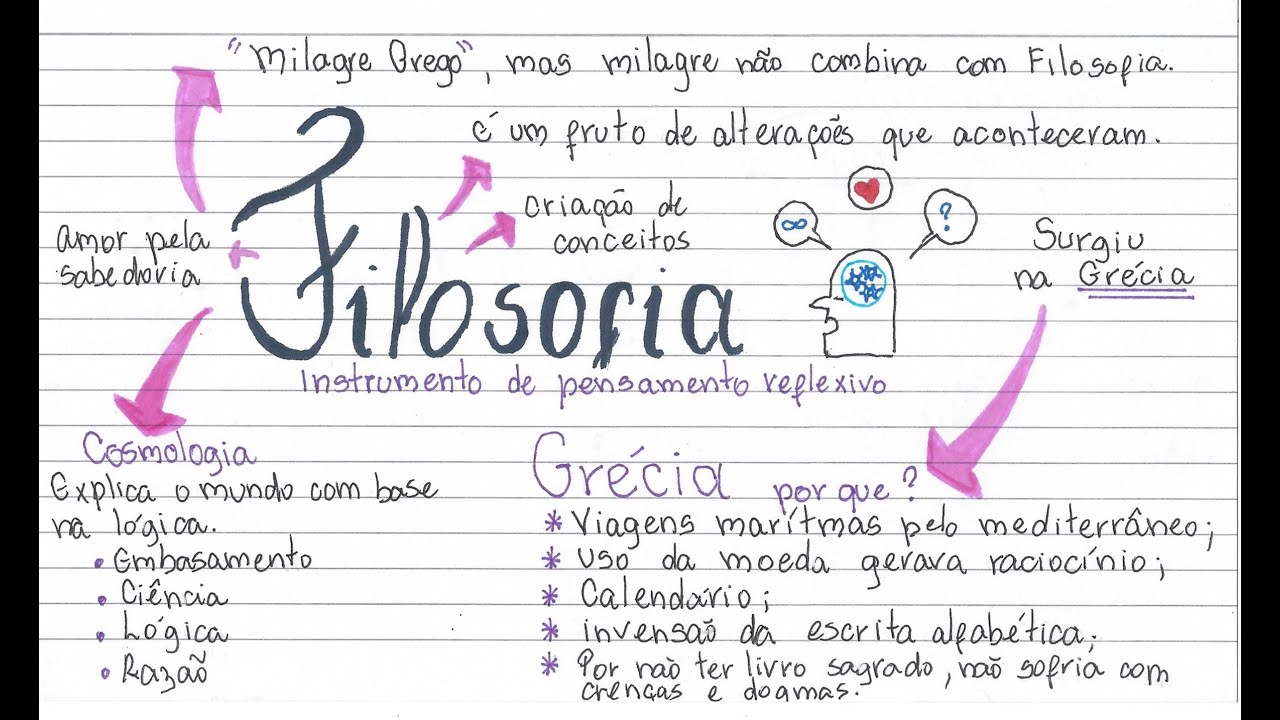 "Milagre Grego", mas milagre não combina com Filosofia.
é um fruto de alterações que aconteceram.
criação de
conceitos
amor pela
sabedoria
∞
?
Surgiu
na Grécia
Filosofia
Instrumento de pensamento reflexivo
Cosmologia
Explica o mundo com base
na lógica.
• Embasamento
• Ciência
• Lógica
• Razão
Grécia por que?
* Viagens marítmas pelo mediterrâneo;
* Uso da moeda gerava raciocínio;
* Calendário;
* invensão da escrita alfabética;
* Por não ter livro sagrado, não sofria com
crenças e dogmas.